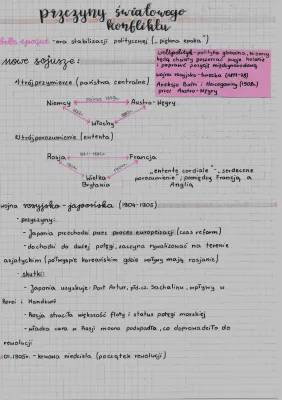 przyczyny światowego
konfliktu
belle epoque - era stabilizacji politycznej ("piękna epoka")
weltpolitik - polityka globalna, Niemcy
będą chciały poszerzać swoje kolonie
i poprawić pozycję międzynarodową
nowe sojusze:
wojna rosyjsko-turecka (1877-78)
Aneksja Bośni i Hercegowiny (1908r.)
przez Austro-Węgry
1) trójprzymierze (państwa centralne)
Niemcy Austro-Węgry
Włochy
2) trójporozumienie (ententa)
Rosja Francja
Wielka
Brytania
"entente cordiale" - "serdeczne
porozumienie" pomiędzy Francją a
Anglią
wojna rosyjsko-japońska (1904-1905)
- przyczyny:
- Japonia przechodzi przez proces europeizacji (czas reform)
- dochodzi do dużej potęgi, zaczyna rywalizować na terenie
azjatyckim (półwyspie koreańskim gdzie wpływy mają rosjanie)
- skutki:
- Japonia uzyskuje: Port Artur, płd. cz. Sachalinu, wpływy w
Korei i Mandżurii
- Rosja straciła większość floty i status potęgi morskiej
- władza cara w Rosji mocno podupadła, co doprowadziło do
rewolucji
.01.1905r. - krwawa niedziela (początek rewolucji)